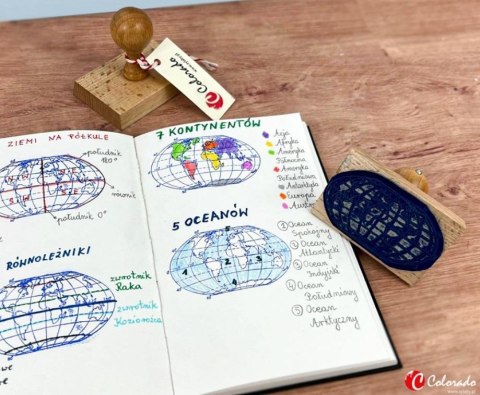 Colorado
ZIEMI NA PÓŁKULE
południk
180°
równik
południk 0°
RÓWNOLEŻNIKI
zwrotnik
Raka
zwrotnik
Koziorożca
7 KONTYNENTÓW
Azja
Afryka
Ameryka
Północna
Ameryka
Południowa
Antarktyda
Europa
Austr
5 OCEANÓW
5
1
2
3
1
4
① Ocean
Spokojny
② Ocean
Atlantycki
③ Ocean
Indyjski
④ Ocean
Południowy
⑤ Ocean
Arktyczny
Colorado